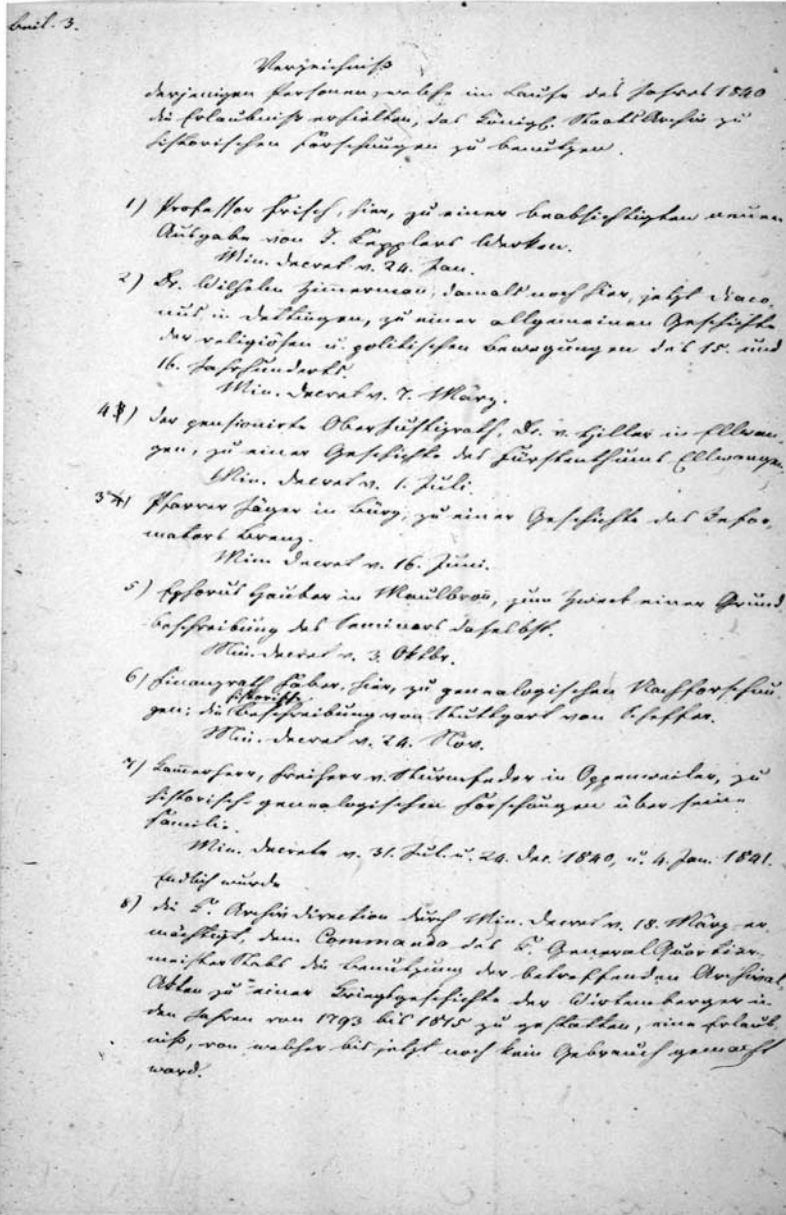 Beil. 3.
Verzeichniß
derjenigen Personen, welche im Laufe des Jahres 1840
die Erlaubniß erhielten, das Königl. StaatsArchiv zu
historischen Forschungen zu benutzen.
1) Professor Frisch, hier, zu einer beabsichtigten neuen
Ausgabe von J. Kepplers Werken.
Min. Decret v. 24. Jan.
2) Dr. Wilhelm Zimmerman, damals noch hier, jetzt Diaco-
nus in Dettingen, zu einer allgemeinen Geschichte
der religiösen u. politischen Bewegungen des 15. und
16. Jahrhunderts.
Min. Decret v. 7. März.
4) Der pensionirte Oberjustizrath, Dr. v. Hiller in Ellwan-
gen, zu einer Geschichte des Fürstenthums Ellwangen.
Min. Decret v. 1. Juli.
3) Pfarrer Jäger in Bürg, zu einer Geschichte des Refor-
mators Brenz.
Min. Decret v. 16. Juni.
5) Ephorus Hauber in Maulbron, zum Zweck einer Grund-
beschreibung des Seminars daselbst.
Min. Decret v. 3. Oktbr.
6) Finanzrath Faber, hier, zu genealogischen Nachforschun-
historische
gen; die Beschreibung von Stuttgart von Scheffer.
Min. Decret v. 24. Nov.
7) Kammerherr, Freiherr v. Sturmfeder in Oppenweiler, zu
historisch-genealogischen Forschungen über seine
Familie.
Min. Decrete v. 31. Jul. u. 24. Dec. 1840, u. 4. Jan. 1841.
Endlich wurde
8) die K. Archivdirection durch Min. Decret v. 18. März er-
mächtigt, dem Commando des K. GeneralQuartier-
meisterStabs die Benützung der betreffenden Archival-
Akten zu einer Kriegsgeschichte der Wirtemberger in
den Jahren von 1793 bis 1815 zu gestatten, eine Erlaub-
niß, von welcher bis jetzt noch kein Gebrauch gemacht
ward.